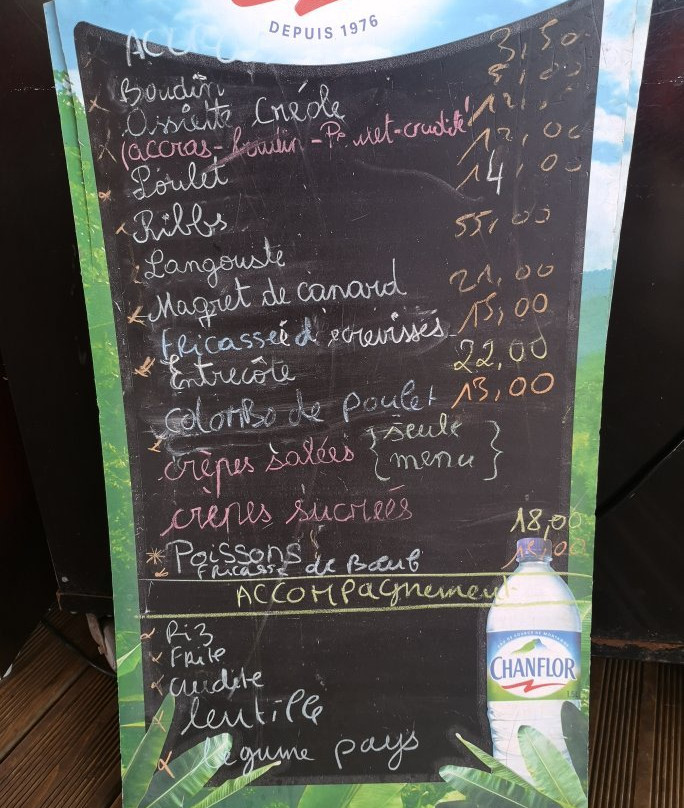 DEPUIS 1976
3,50
Boudin 5,00
Assiette Créole 12,00
(accras-boudin-
Poulet 14,00
Ribbs
Langouste 55,00
Magret de canard 21,00
Fricasseé d'ecrevisses 15,00
Entrecôte 22,00
Colombo de poulet 13,00
crèpes salées { seule menu }
crèpes sucrées
Poissons 18,00
Fricassé de Bœuf
ACCOMPAgnement
Riz
Frite
crudite
lentille
légume pays
CHANFLOR